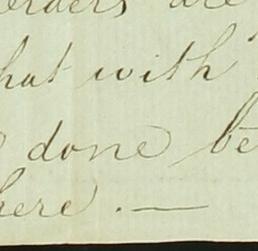 orders are
that with
done be
here . —